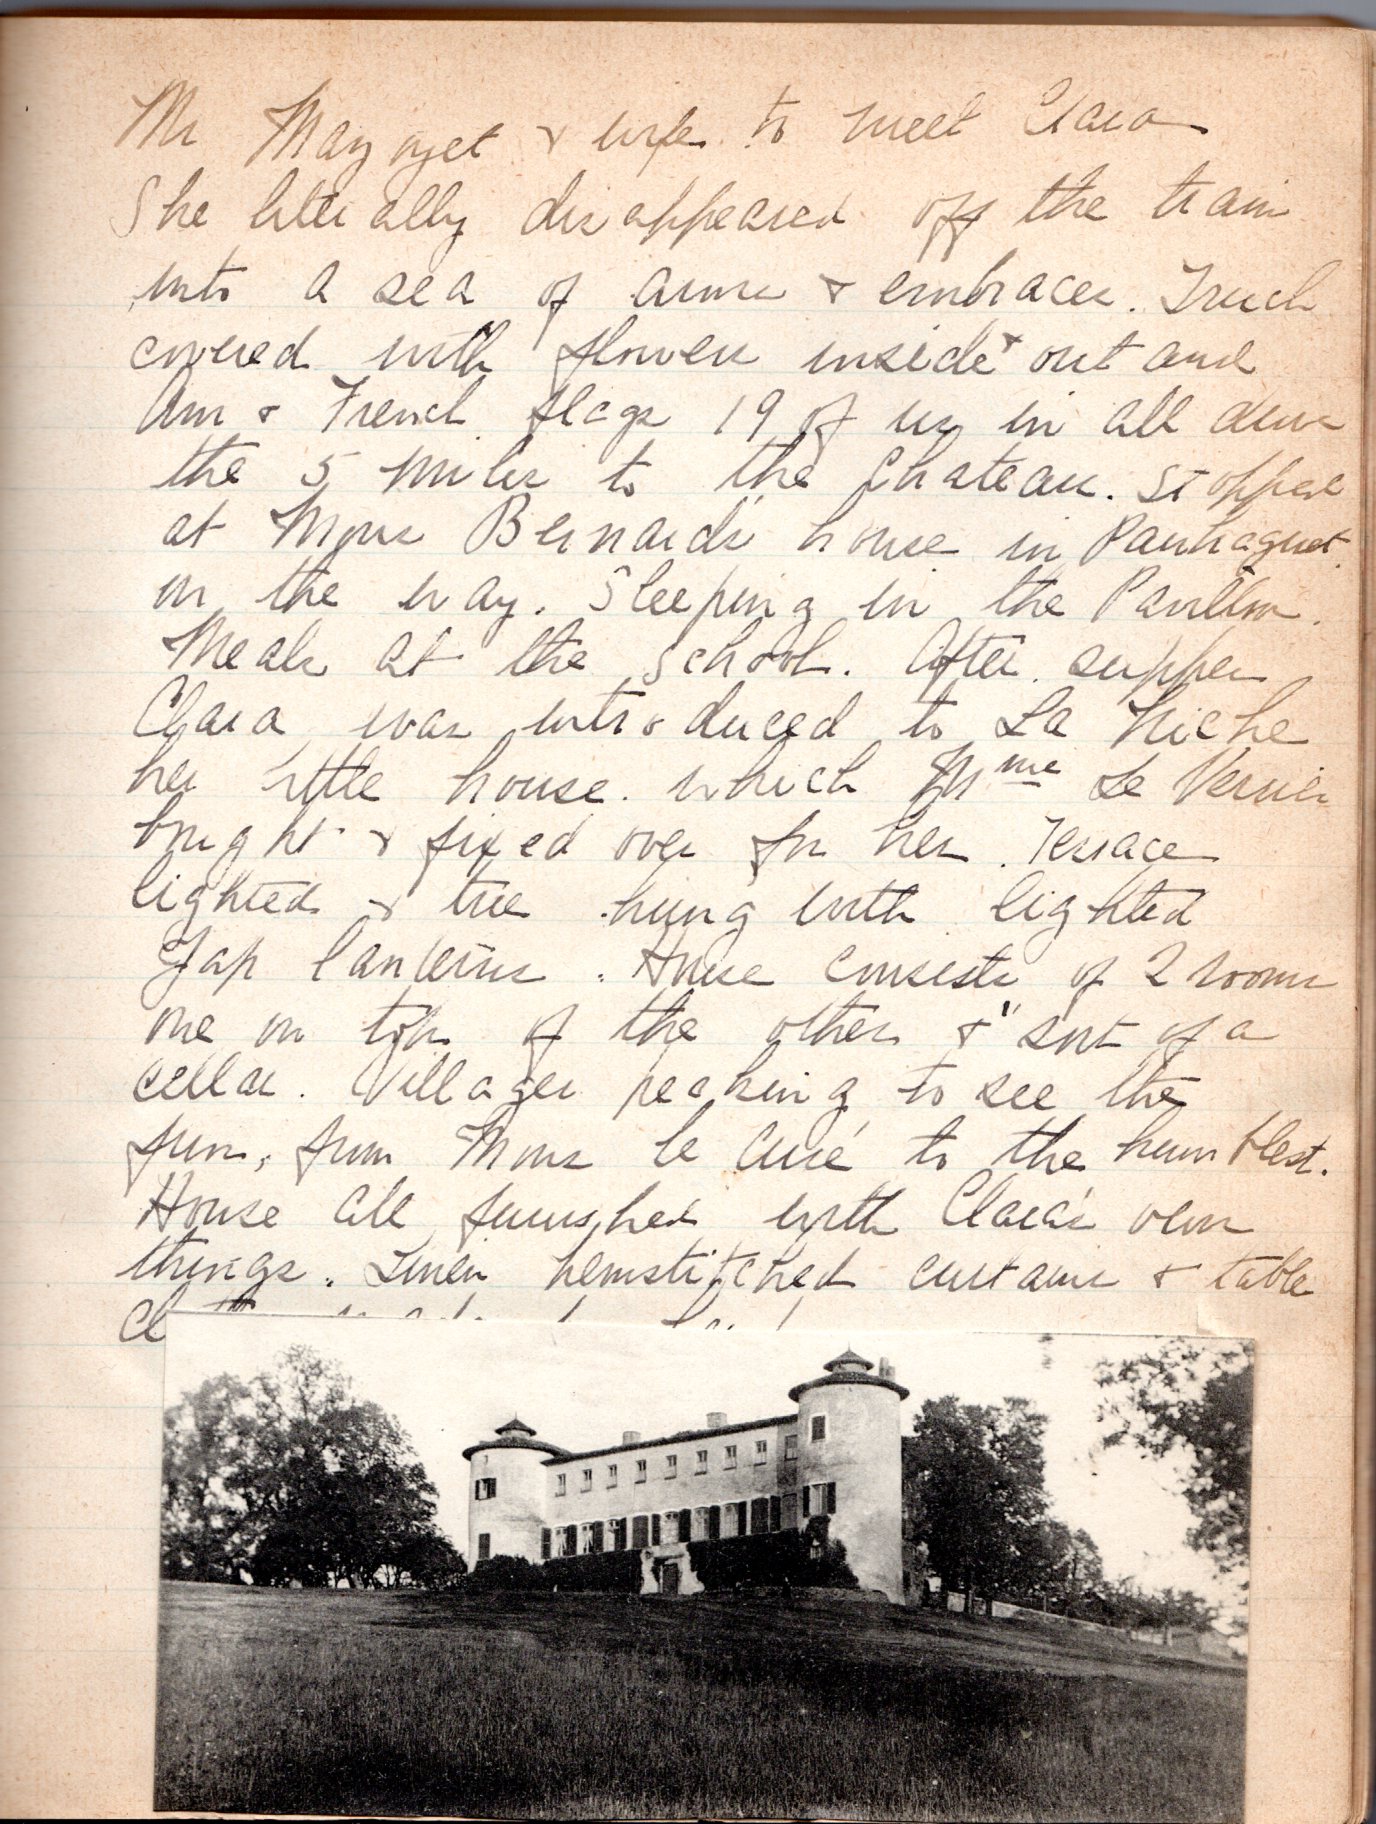 Mr Mazoyet & wife to meet Clara
She literally disappeared off the train
into a sea of arms & embraces. Truck
covered with flowers inside & out and
Am & French flags 19 of us in all drove
the 5 miles to the Chateau. Stopped
at Mons Bernards house in Paulhaguet
on the way. Sleeping in the Pavilion.
Meals at the school. After supper
Clara was introduced to La Niche
her little house which Mme Le Vernier
bought & fixed over for her. Terrace
lighted & tree hung with lighted
Jap lanterns. House consists of 2 rooms
one on top of the other & sort of a
cellar. Villager peaking to see the
fun, from Mons le Curé to the humblest.
House all furnished with Clara's own
things. Linen hemstitched curtains & table